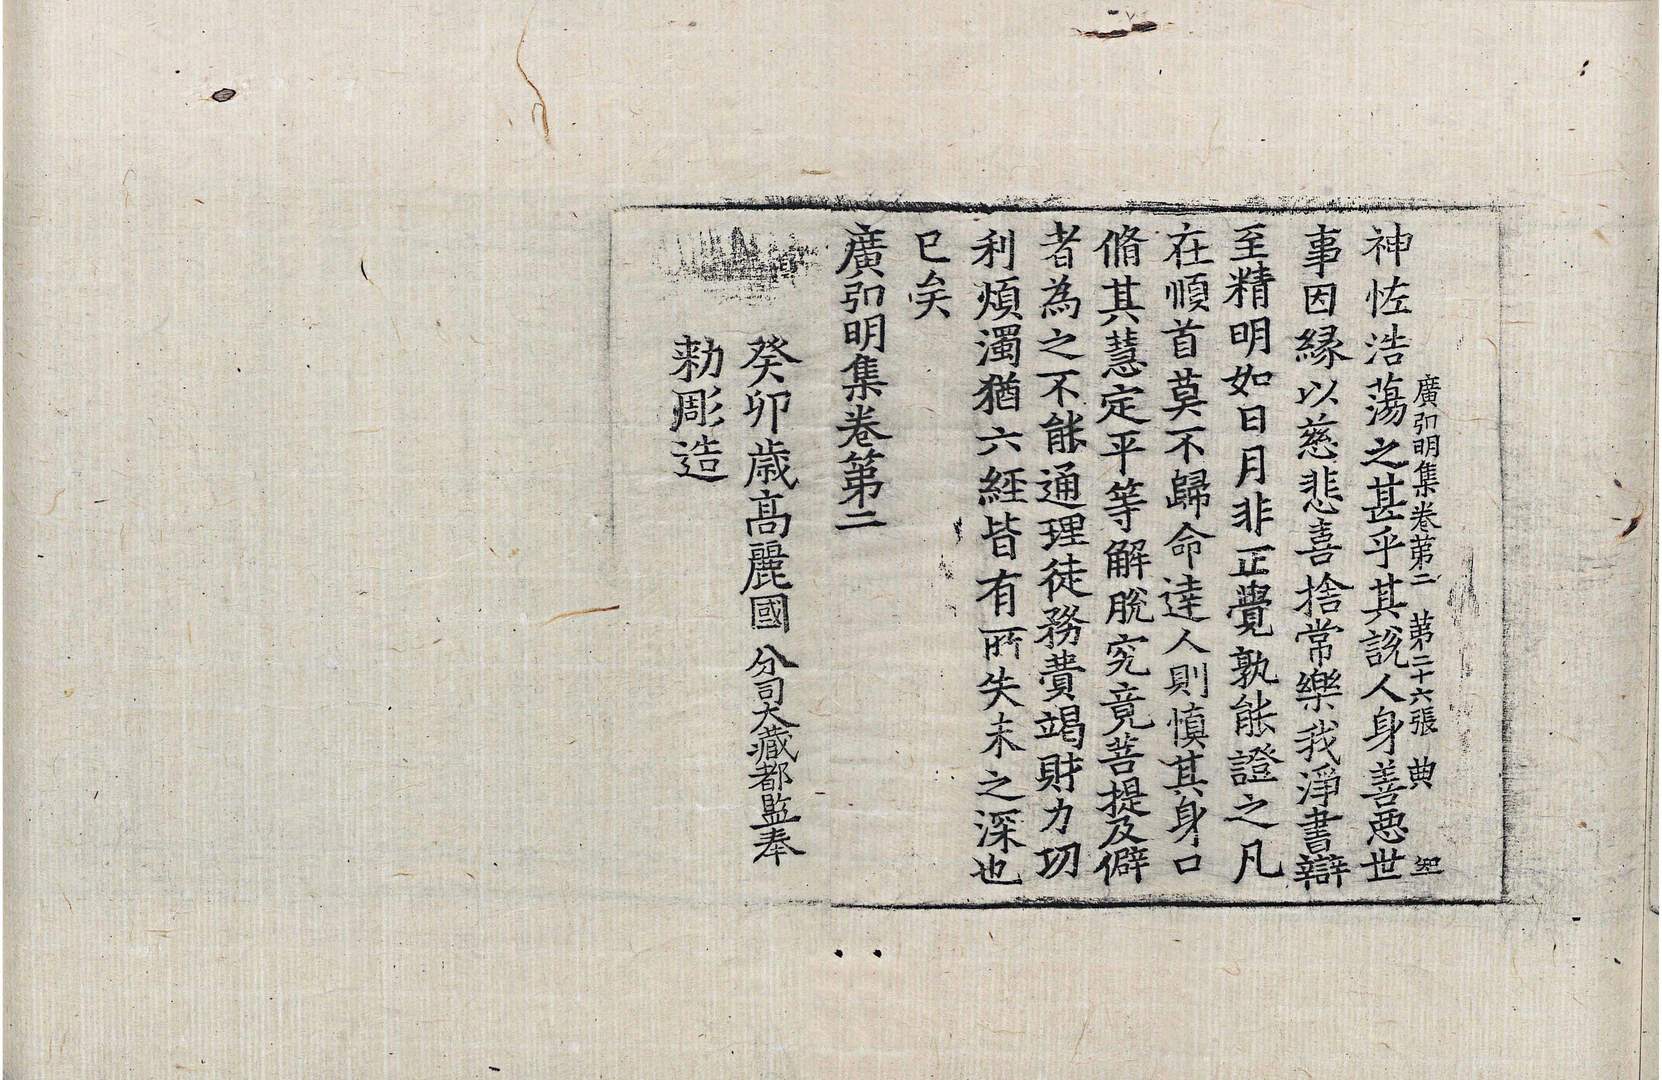 廣弘明集卷苐二 苐二十六張 典
神恠浩蕩之甚乎其說人身善惡世
事因緣以慈悲喜捨常樂我淨書辯
至精明如日月非正覺孰能證之凡
在順首莫不歸命達人則慎其身口
脩其慧定平等解脫究竟菩提及僻
者為之不能通理徒務費竭財力功
利煩濁猶六經皆有所失未之深也
已矣
廣弘明集卷第二
癸卯歲高麗國分司大藏都監奉
勅彫造